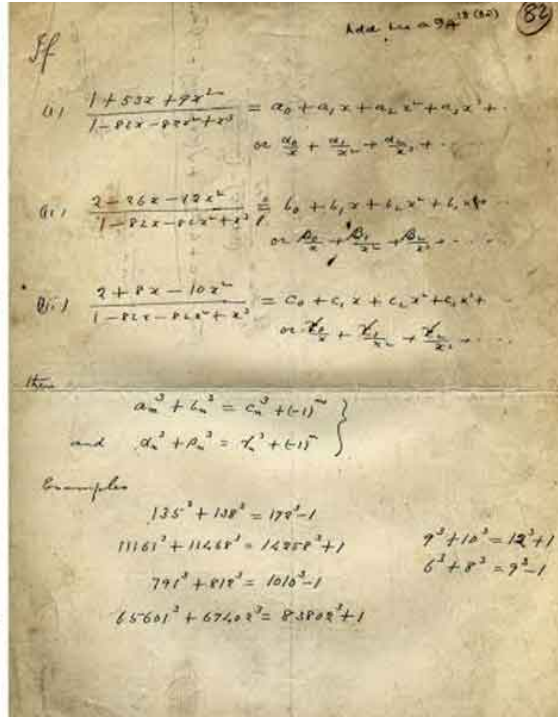 82
If
(i) (1 + 53x + 9x²)/(1 − 82x − 82x² + x³) = a₀ + a₁x + a₂x² + a₃x³ + ··
or α₀/x + α₁/x² + α₂/x³ + ··
(ii) (2 − 26x − 12x²)/(1 − 82x − 82x² + x³) = b₀ + b₁x + b₂x² + b₃x³ + ··
or β₀/x + β₁/x² + β₂/x³ + ····
(iii) (2 + 8x − 10x²)/(1 − 82x − 82x² + x³) = c₀ + c₁x + c₂x² + c₃x³ + ··
or γ₀/x + γ₁/x² + γ₂/x³ + ····
then
aₙ³ + bₙ³ = cₙ³ + (−1)ⁿ }
and αₙ³ + βₙ³ = γₙ³ + (−1)ⁿ
Examples
135³ + 138³ = 172³ − 1
11161³ + 11468³ = 14258³ + 1
9³ + 10³ = 12³ + 1
791³ + 812³ = 1010³ − 1
6³ + 8³ = 9³ − 1
65601³ + 67402³ = 83802³ + 1